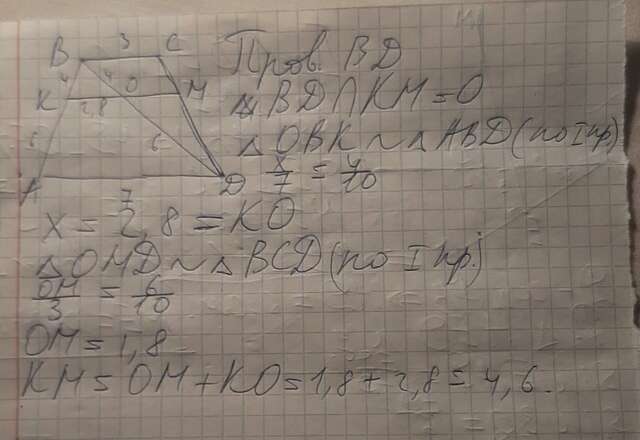 B 3 C
4 4 O
K 2,8 M
6 6
A 7 D
Пров. BD
BD∩KM=O
△OBK~△ABD(по I пр)
x/7 = 4/10
x = 2,8 = KO
△OMD~△BCD(по I пр.)
OM/3 = 6/10
OM = 1,8
KM = OM + KO = 1,8 + 2,8 = 4,6.